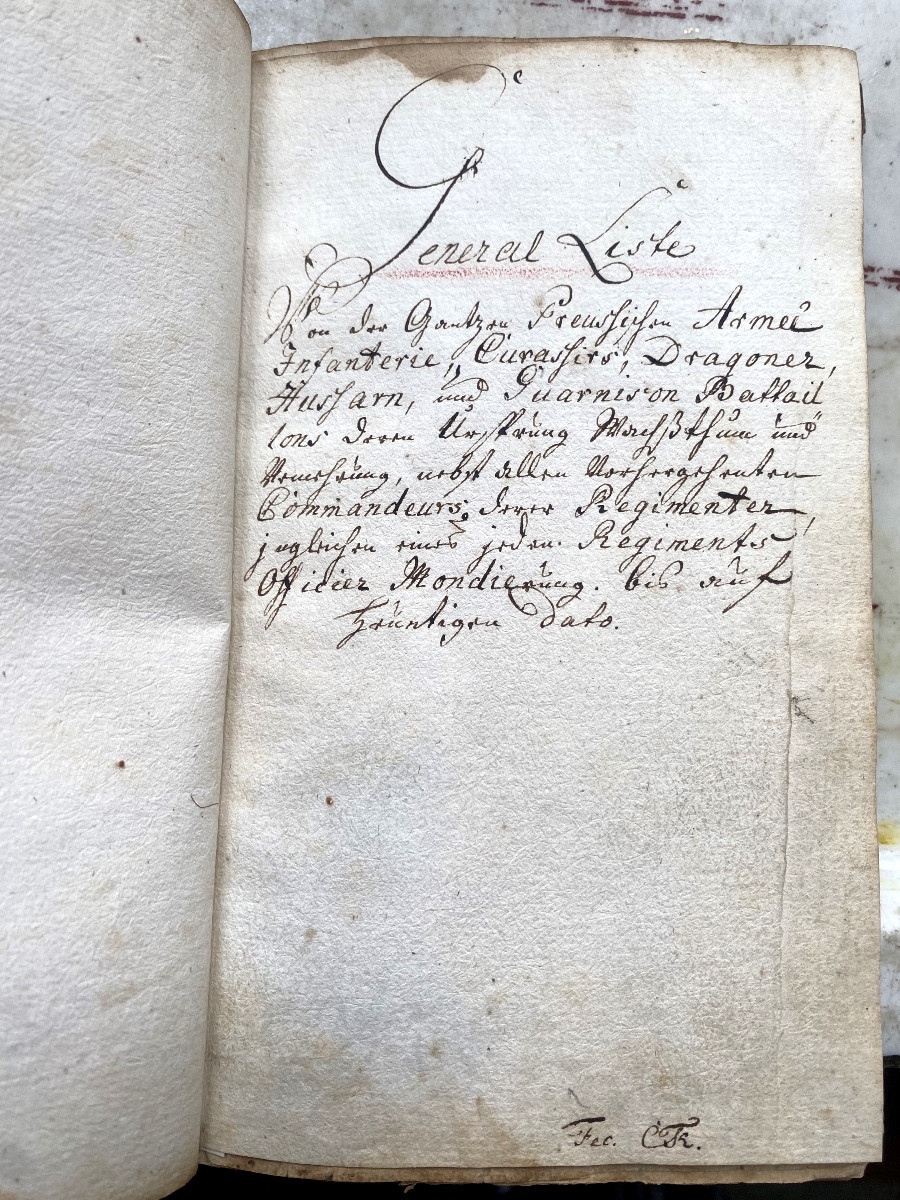 General Liste
Von der Gantzen Preussichen Armeé
Infanterie, Curassirs, Dragoner,
Hussarn, und Guarnison Battail
lons deren Ursprung Wachsthum und
Vermehrung, nebst allen Vorhergehenten
Commandeurs, derer Regimenter,
ingleichen eines jeden Regiments
Officier Mondierung. bis auf
heuntigen dato.
Fec. CTK.